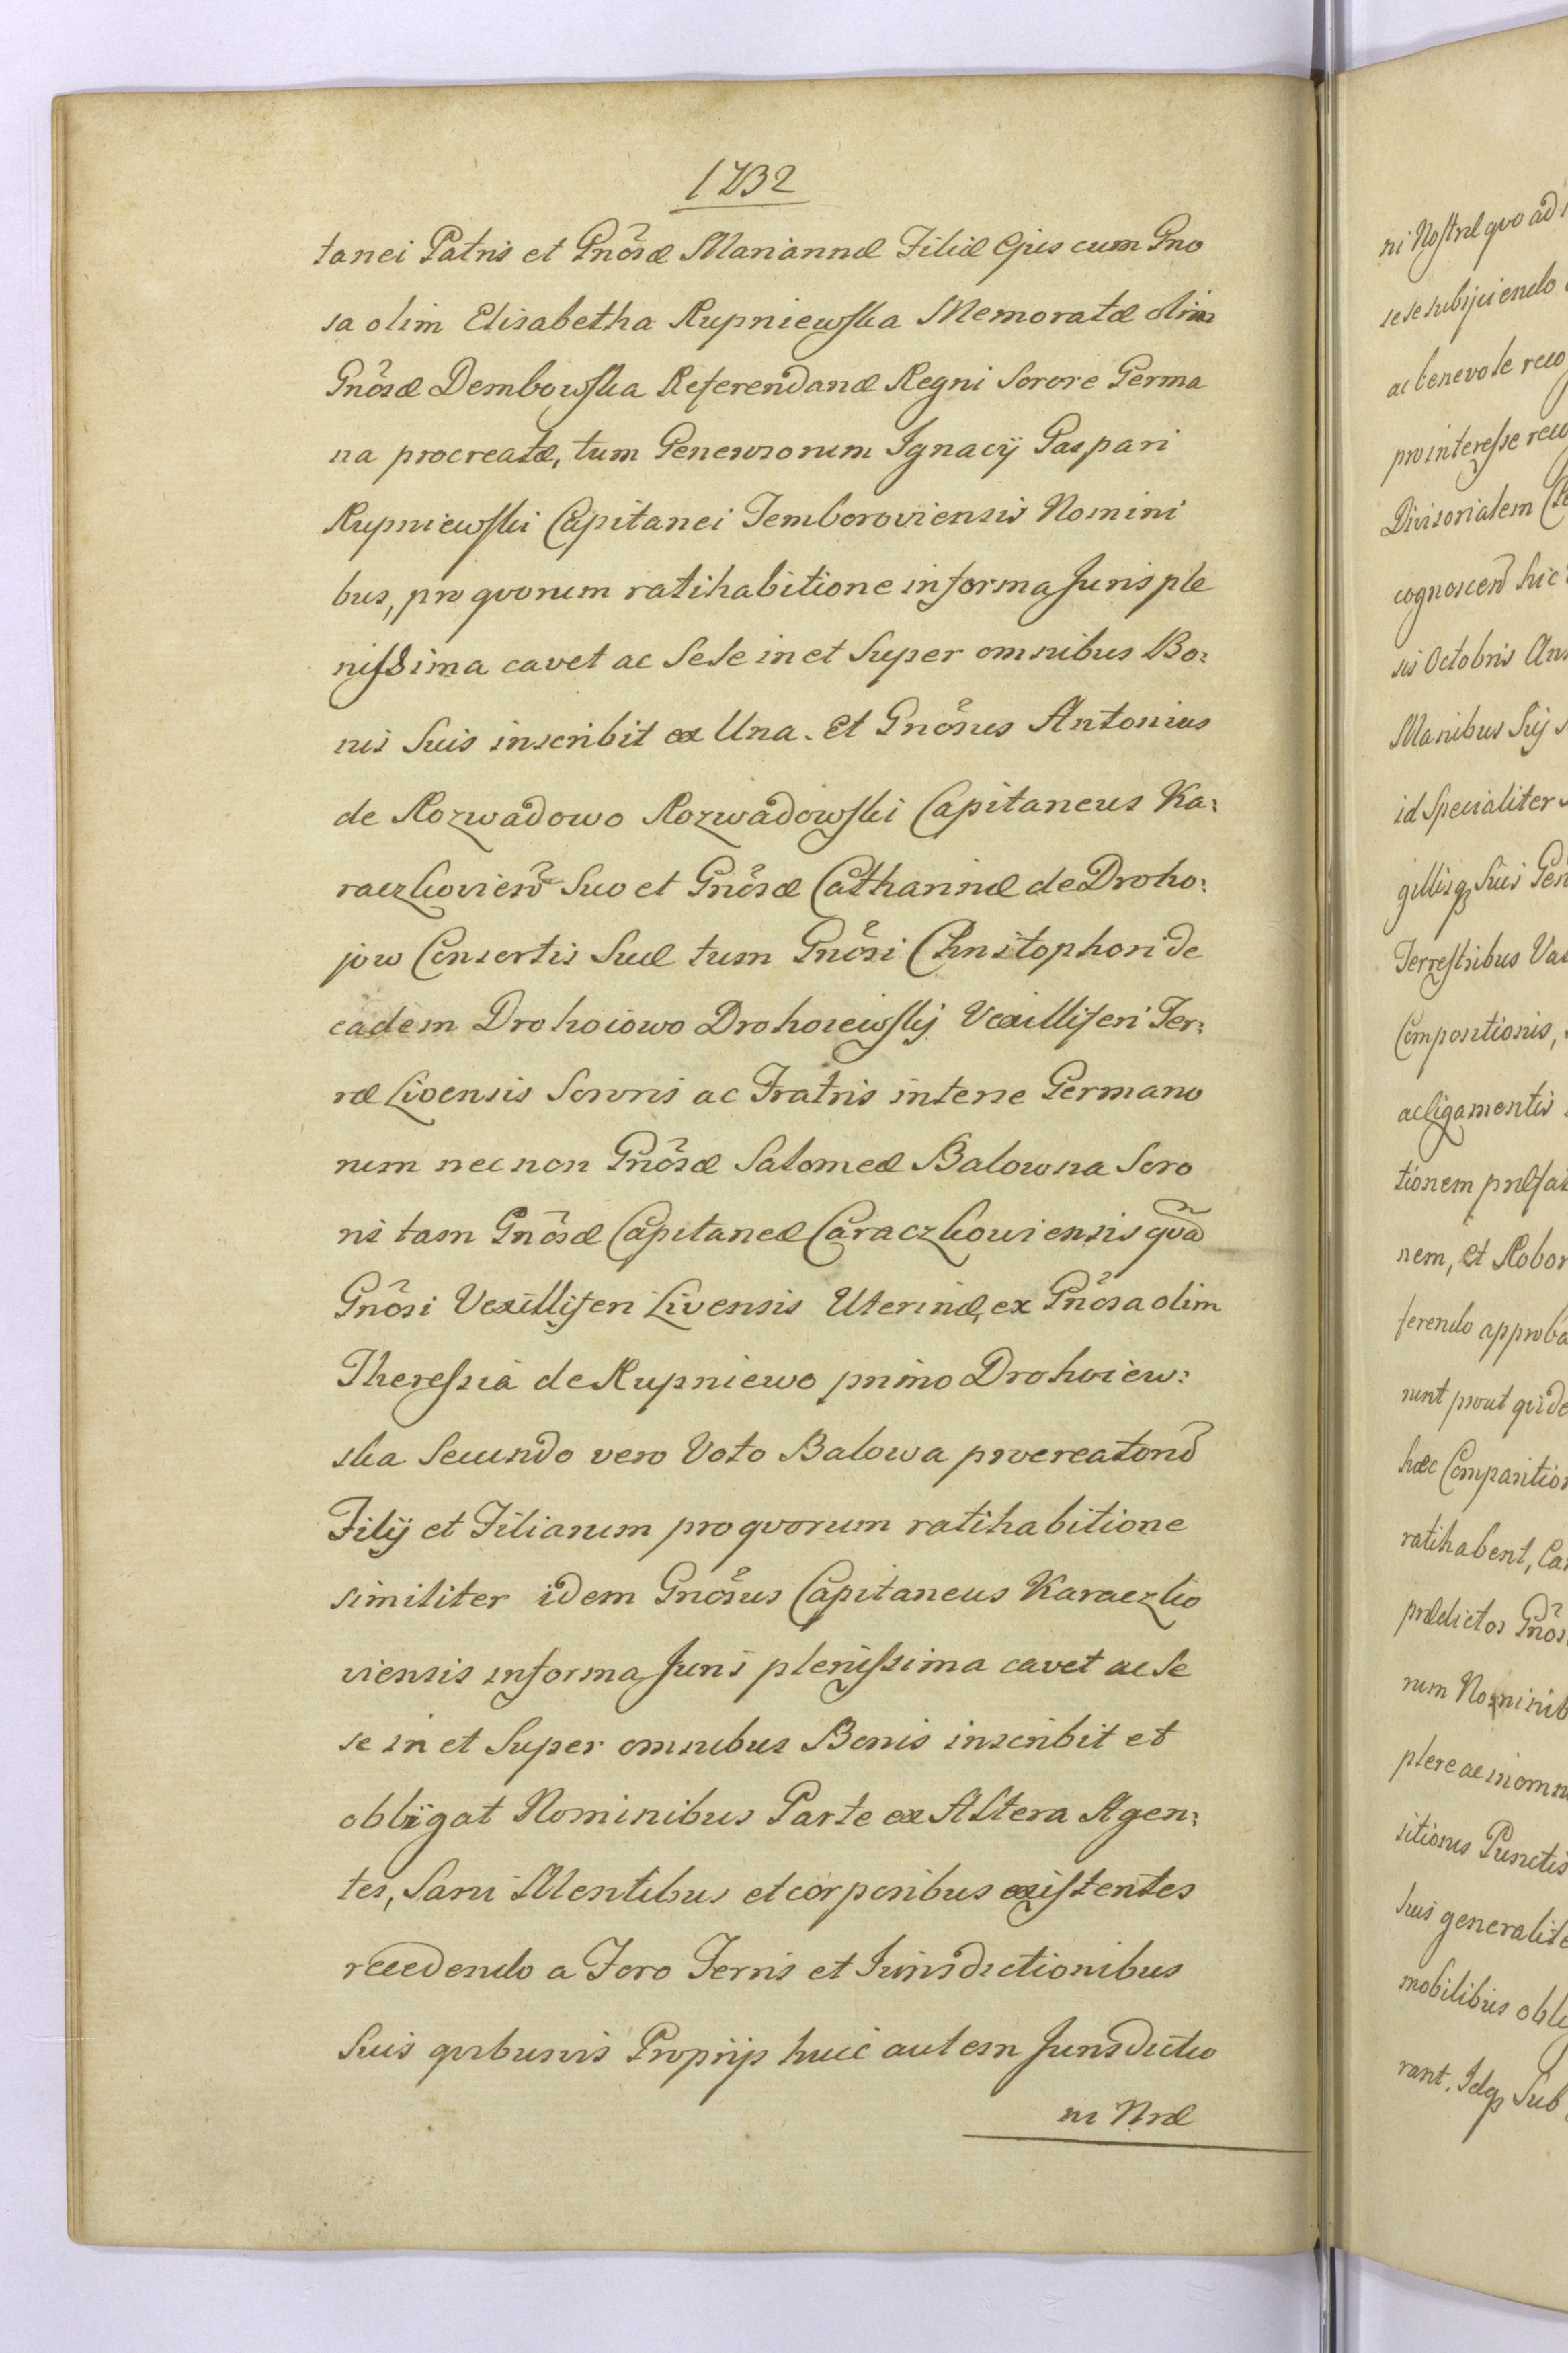 1732
tanei Patris et Gnõsæ Mariannæ Filiæ Ejus cum Gno
sa olim Elisabetha Rupniewska Memoratæ olim
Gnõsæ Dembowska Referendariæ Regni Sorore Germa
na procreatæ, tum Generosorum Ignacij Gaspari
Rupniewski Capitanei Temboroviensis Nomini
bus, pro quorum ratihabitione in forma Juris ple
nissima cavet ac Sese in et Super omnibus Bo:
nis Suis inscribit ex Una. Et Gnõsus Antonius
de Rozwadowo Rozwadowski Capitaneus Ka:
raczkovien̄ Suo et Gnõsæ Catharinæ de Droho:
jow Consortis Suæ tum Gnõsi Christophori de
eadem Drohoiowo Drohoiewskij Vexilliferi Ter:
ræ Livensis Sororis ac Fratris interse Germano
rum nec non Gnõsæ Salomeæ Balowna Soro
ris tam Gnõsæ Capitaneæ Caraczkoviensis qua͠
Gnõsi Vexilliferi Livensis Uterinæ, ex Gnõsa olim
Theressia de Rupniewo primo Drohoiew:
ska Secundo vero Voto Balowa procreatorũ
Filij et Filiarum pro quorum ratihabitione
similiter idem Gnõsus Capitaneus Karaczko
viensis in forma Juris plenissima cavet ac Se
se in et Super omnibus Bonis inscribit et
obligat Nominibus Parte ex Altera Agen:
tes, Sani Mentibus et corporibus existentes
recedendo a Foro Terris et Jurisdictionibus
Suis quibusvis Proprijs huic autem Jurisdictio
ni Nræ
ni Nostræ quo ad
sese subijciendo
ac benevole reco
pro interesse reco
Divisorialem
cognoscen̄ hic
sis Octobris An
Manibus Suij
id Specialiter
gillisq Suis Gen
Terrestribus Va
Compositionis,
ac ligamentis
tionem præfat
nem, et Robor
ferendo approba
runt prout quide
hæc Comparition
ratihabent, Ca
prædictos Gnõs
rum Nominib
plere ac in omn
sitionis Punctis
suis generalite
mobilibus obli
rant. Idq Sub